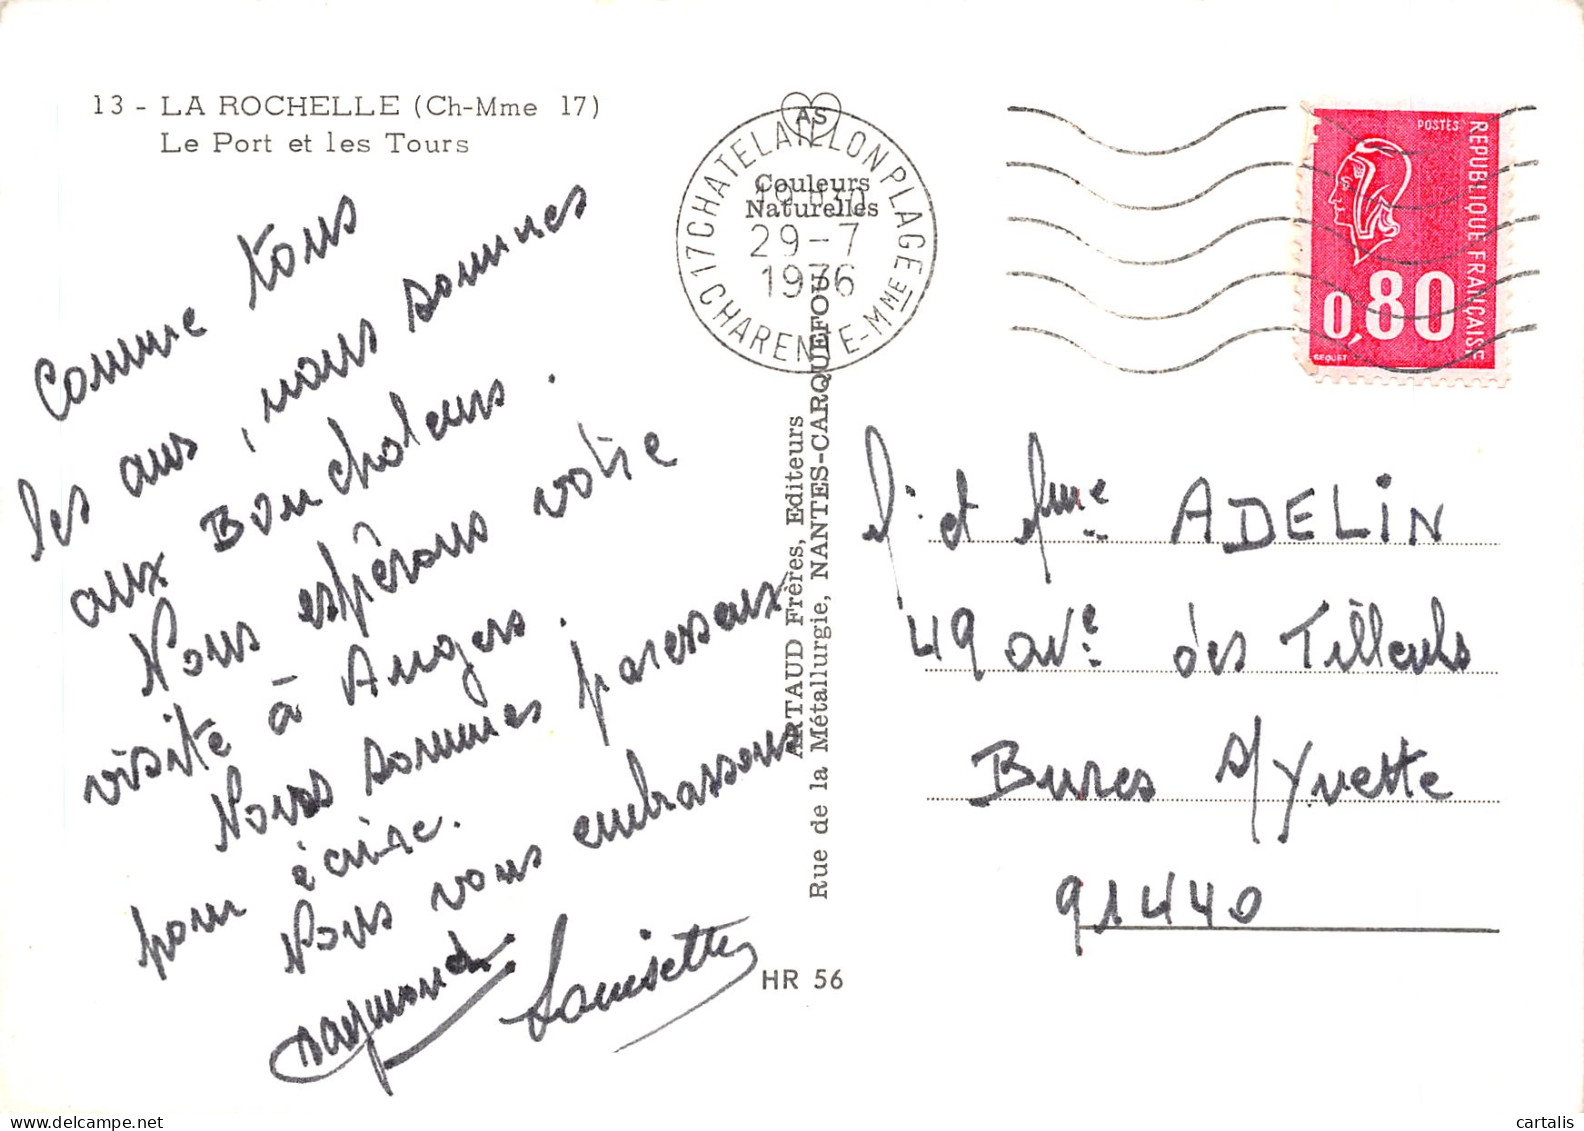 13 - LA ROCHELLE (Ch-Mme 17)
Le Port et les Tours
Comme tous
les ans, nous sommes
aux Boucholeurs.
Nous espérons votre
visite à Angers.
Nous sommes paresseux
pour écrire.
Nous vous embrassons
Raymond.
Louisette
AS
Couleurs
Naturelles
17 CHATELAILLON PLAGE
29-7
1976
CHARENTE-MME
ARTAUD Frères, Editeurs
Rue de la Métallurgie, NANTES-CARQUEFOU
HR 56
POSTES
REPUBLIQUE FRANÇAISE
0,80
BEQUET
M. et Mme ADELIN
49 ave des Tilleuls
Bures s/Yvette
91440
cartalis